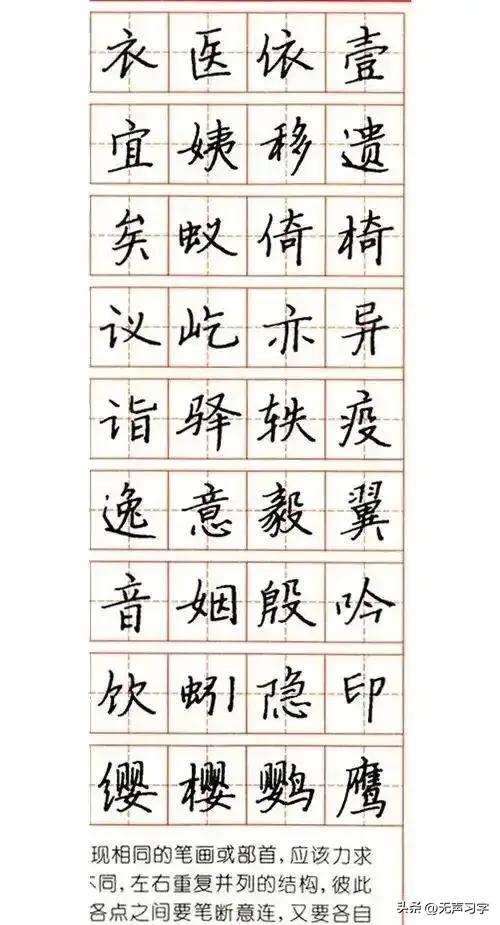 衣医依壹
宜姨移遗
矣蚁倚椅
议屹亦异
诣驿轶疫
逸意毅翼
音姻殷吟
饮蚓隐印
缨樱鹦鹰
现相同的笔画或部首，应该力求
不同，左右重复并列的结构，彼此
各点之间要笔断意连，又要各自
头条 @无声习字